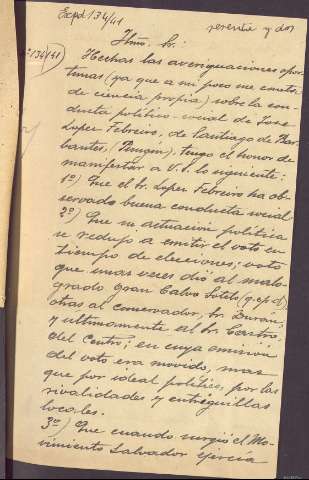 Expd. 134/41
sesenta y dos
Iltmo. Sr.:
134/41
Hechas las averiguaciones opor-
tunas (ya que a mi poco me consta
de ciencia propia) sobre la con-
ducta político-social de Jose
Lopez Febreiro, de Santiago de Bar-
bantes, (Punxín), tengo el honor de
manifestar a V. I. lo siguiente:
1º) Que el Sr. Lopez Febreiro ha ob-
servado buena conducta social
2º) Que su actuación política
se redujo a emitir el voto en
tiempo de elecciones; voto
que unas veces dió al malo-
grado gran Calvo Sotelo (q.e.p.d),
otras al conservador, Sr.
y ultimamente al Sr.
del Centro; en cuya emisión
del voto era movido, mas
que por ideal político, por las
rivalidades y
locales.
3º) Que cuando surgió el Mo-
vimiento Salvador ejercía